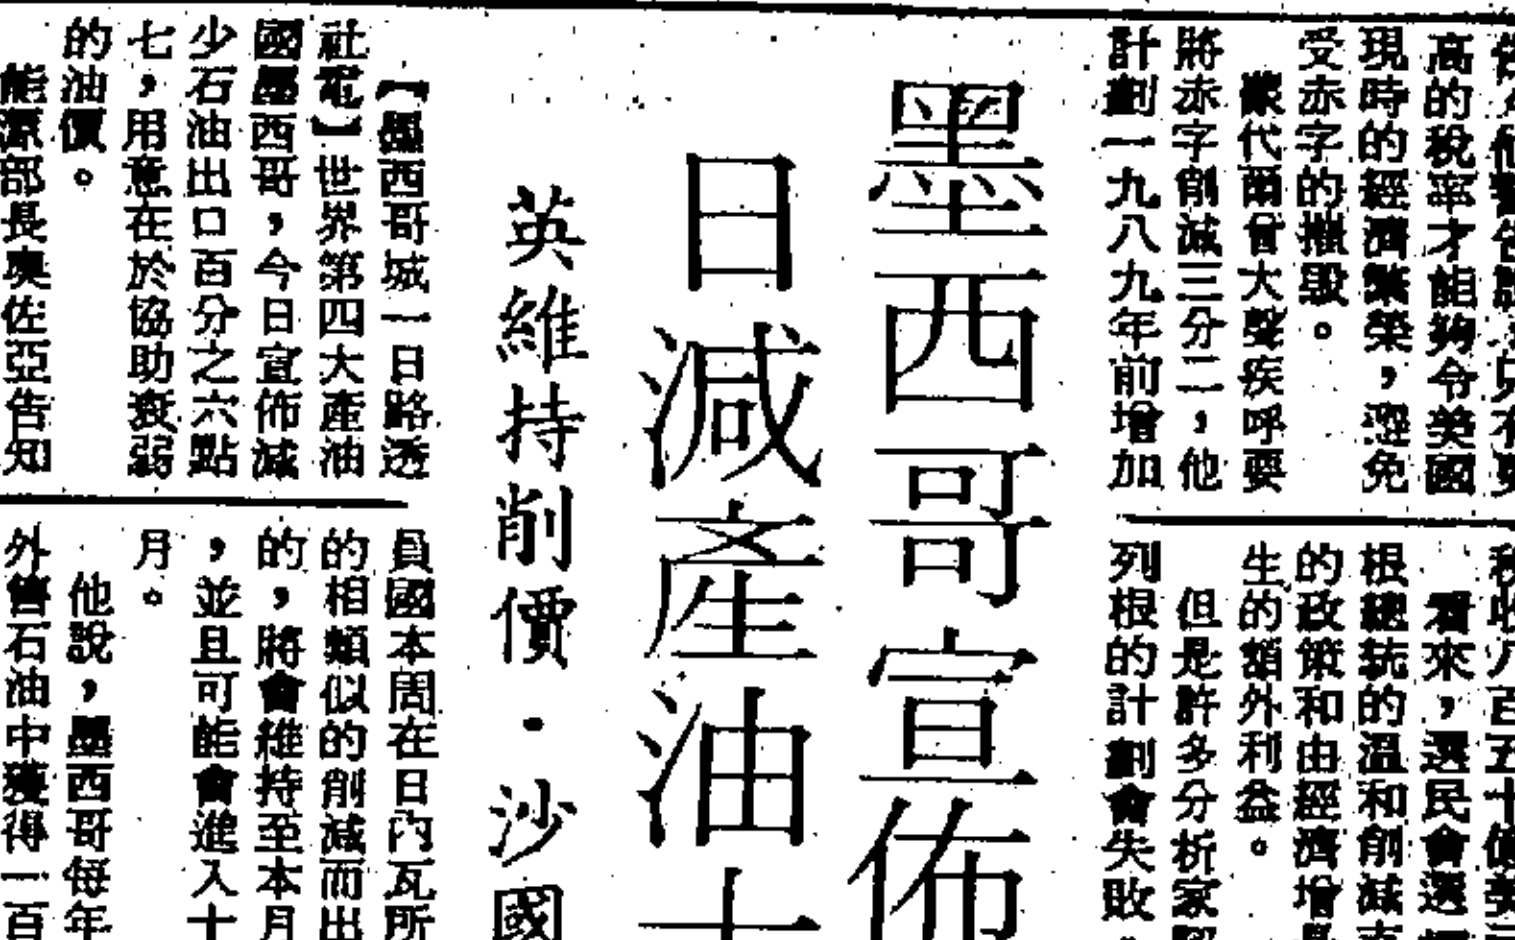 高的稅率才能夠令美國
現時的經濟繁榮，避免
受赤字的摧毀。
蒙代爾曾大聲疾呼要
將赤字削減三分二，他
計劃一九八九年前增加
看來，選民會選
根總統的溫和削減
的政策和由經濟增長
生的額外利益。
但是許多分析家
列根的計劃會失敗，
墨西哥宣佈
日減產油十
英維持削價·沙國
【墨西哥城一日路透
社電】世界第四大產油
國墨西哥，今日宣佈減
少石油出口百分之六點
七，用意在於協助疲弱
的油價。
能源部長奧佐亞告知
員國本周在日內瓦所
的相類似的削減而出
的，將會維持至本月
，並且可能會進入十
月。
他說，墨西哥每年
外售石油中獲得一百